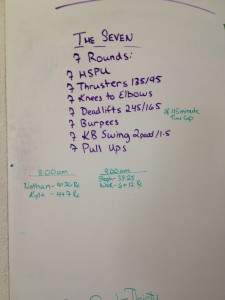 The Seven
7 Rounds:
7 HSPU
7 Thrusters 135/95
7 Knees to Elbows
7 Deadlifts 245/165
7 Burpees
7 KB Swing 2pood/1.5
7 Pull Ups
45 minute
Time Cap
8:00am
9:00am
Kyle - 4+7